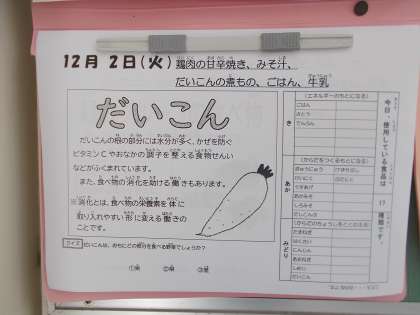 12月 2日(火) 鶏肉の甘辛焼き、みそ汁、
だいこんの煮もの、ごはん、牛乳
だいこん
だいこんの根の部分には水分が多く、かぜを防ぐ
ビタミンCやおなかの調子を整える食物せんい
などがふくまれています。
また、食べ物の消化を助ける働きもあります。
※消化とは、食べ物の栄養素を体に
取り入れやすい形に変える働きの
ことです。
クイズ だいこんは、おもにどの部分を食べる野菜でしょうか？
①茎 ②根 ③葉
今日、使用している食品は 17 種類です。
き
(エネルギーのもとになる)
ごはん
さとう
でんぷん
あか
(からだをつくるもとになる)
ぎゅうにゅう
とりにく
あかみそ
しろみそ
みどり
(からだのちょうしをととのえる)
たまねぎ
はくさい
にんじん
あおねぎ
しめじ
だいこん